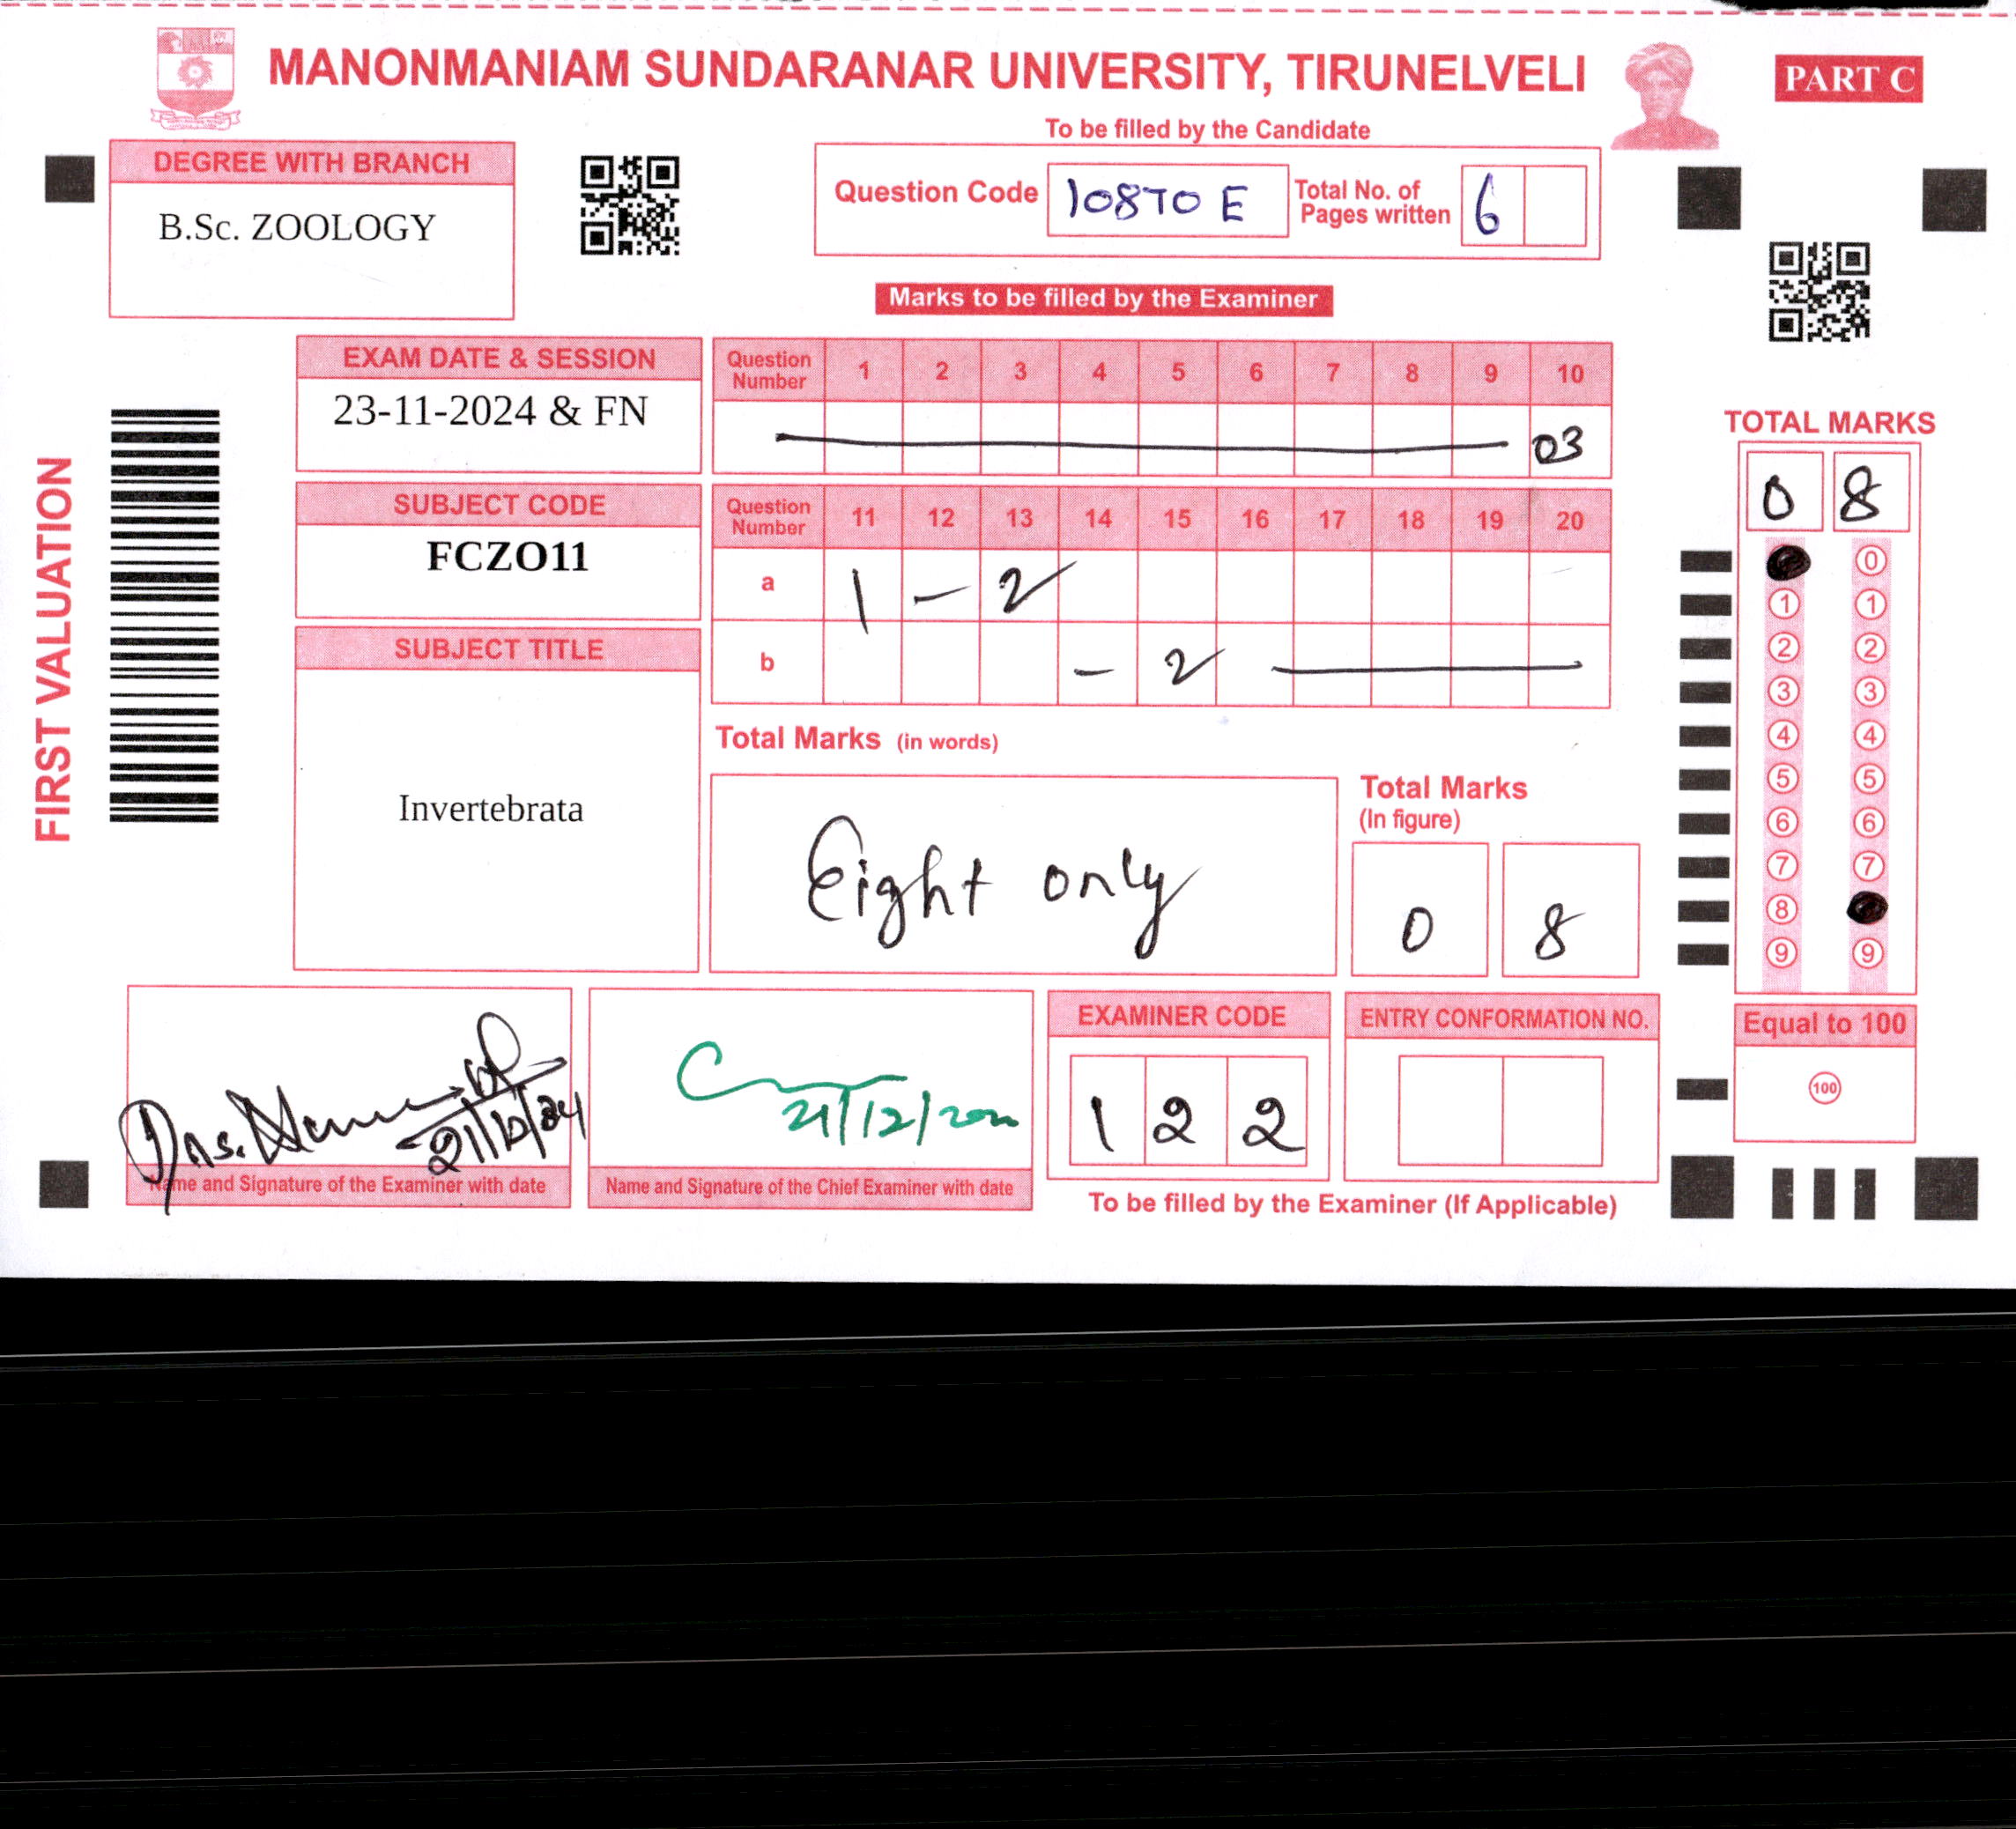 MANONMANIAM SUNDARANAR UNIVERSITY, TIRUNELVELI
PART C
To be filled by the Candidate
DEGREE WITH BRANCH
B.Sc. ZOOLOGY
Question Code 10870 E
Total No. of Pages written 6
Marks to be filled by the Examiner
FIRST VALUATION
EXAM DATE & SESSION
23-11-2024 & FN
SUBJECT CODE
FCZO11
SUBJECT TITLE
Invertebrata
Question Number 1 2 3 4 5 6 7 8 9 10
03
Question Number 11 12 13 14 15 16 17 18 19 20
a 1 - 2
b - 2
Total Marks (in words)
Eight only
Total Marks (In figure)
0 8
TOTAL MARKS
0 8
0
1 1
2 2
3 3
4 4
5 5
6 6
7 7
8
9 9
Equal to 100
100
21/12/24
Name and Signature of the Examiner with date
21/12/20
Name and Signature of the Chief Examiner with date
EXAMINER CODE
1 2 2
ENTRY CONFORMATION NO.
To be filled by the Examiner (If Applicable)